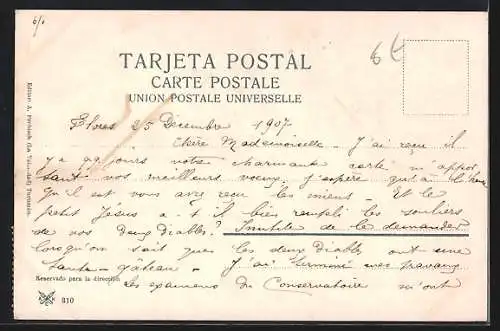 6/1
6€
TARJETA POSTAL
CARTE POSTALE
UNION POSTALE UNIVERSELLE
Flores 25 Decembre 1907
Chère Mademoiselle - J'ai reçu il
y a qq jours votre charmante carte m'appor
tant vos meilleurs voeux. J'espère qu'à
qu'il est vous avez reçu les miens. Et le
petit Jésus a-t-il bien rempli les souliers
de vos deux Diables? Inutile de le demander
lorsqu'on sait que les deux Diables ont une
tante-gâteau - J'ai terminé mes travaux
les examens du Conservatoire m'ont
Reservado para la direccion
310
Editor A.